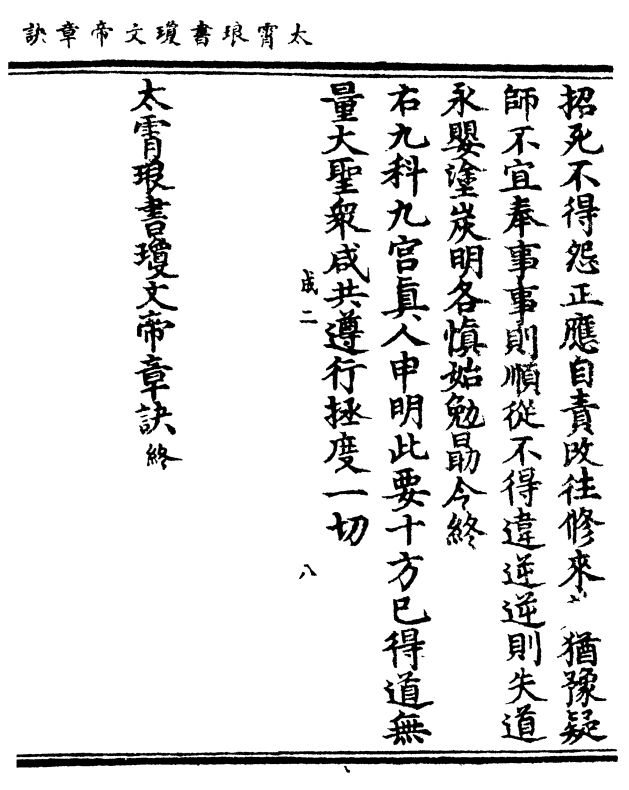 太霄琅書瓊文帝章訣
招死不得怨正應自責改往修來猶豫疑
師不宜奉事事則順從不得違逆逆則失道
永嬰塗炭明各慎始勉勗令終
右九科九宮真人申明此要十方已得道無
量大聖衆咸共遵行拯度一切
成二
八
太霄琅書瓊文帝章訣終